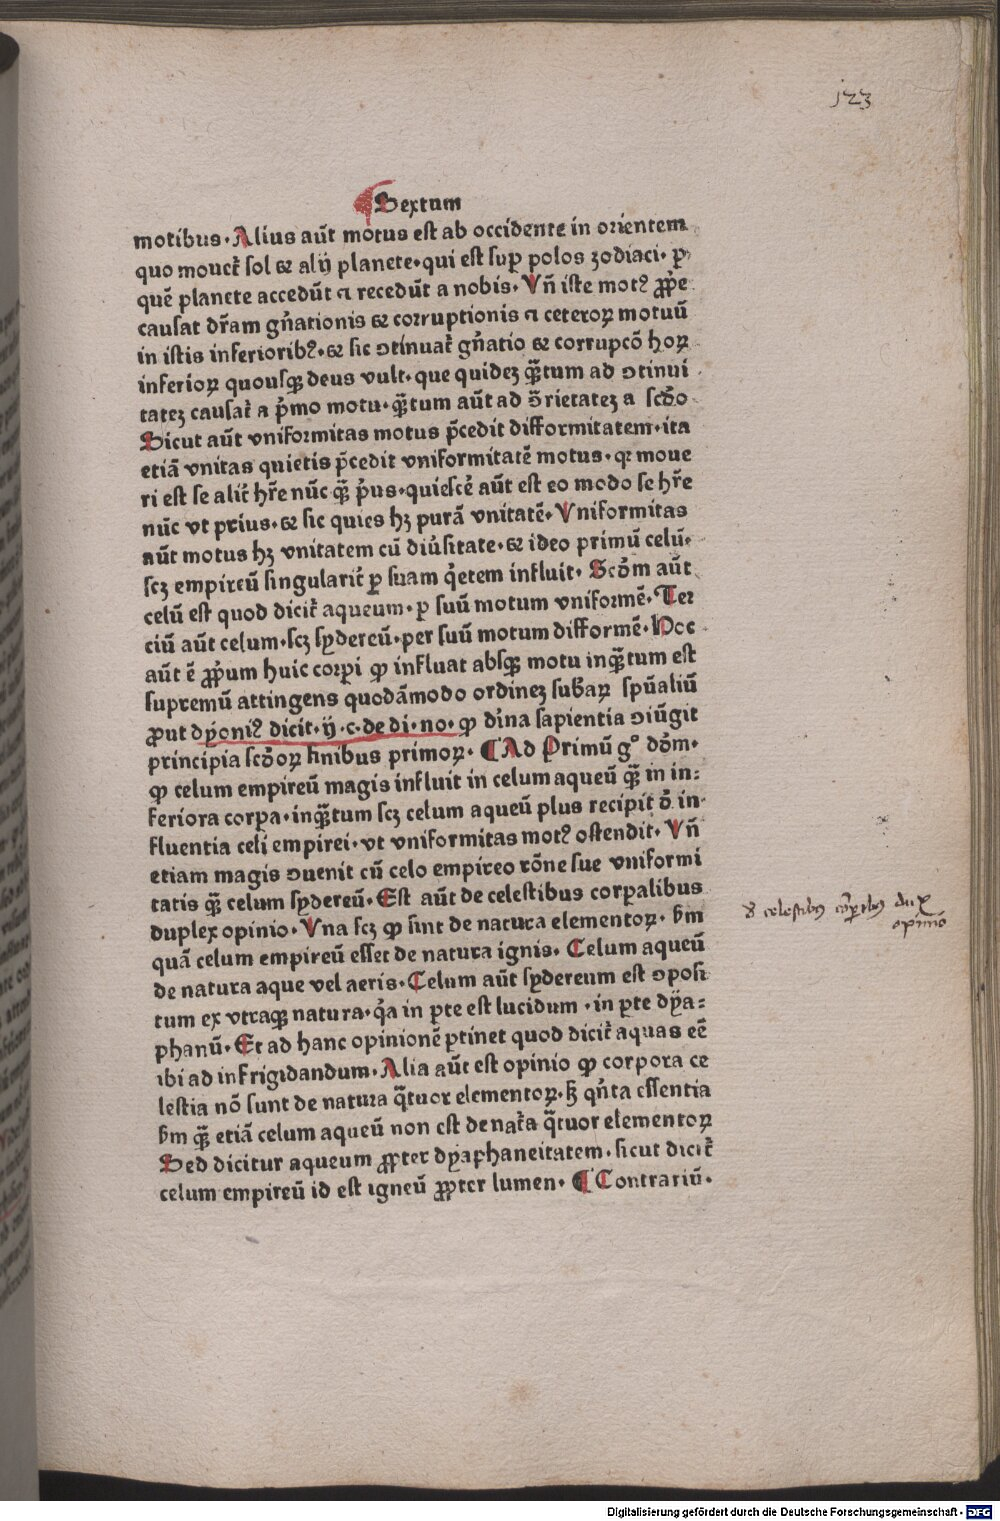 123
Sextum
motibus. Alius aūt motus est ab occidente in orientem
quo mouet᷑ sol ⁊ alij planete. qui est suꝑ polos zodiaci. ꝑ
quē planete accedūt ⁊ recedūt a nobis. Vñ iste motꝰ ꝓṕe
causat dr̄am gn̄ationis ⁊ corruptionis ⁊ ceteroꝝ motuū
in istis inferioribꝰ. ⁊ sic ↄtinuat᷑ gn̄atio ⁊ corrupcō hoꝝ
inferioꝝ quousqꝫ deus vult. que quideꝫ qꝫ̄tum ad ↄtinui
tateꝫ causat᷑ a p̄mo motu. qꝫ̄tum aūt ad ↄ̄rietateꝫ a scd̄o
Sicut aūt vniformitas motus p̄cedit difformitatem. ita
etiā vnitas quietis p̄cedit vniformitatē motus. qꝛ moue
ri est se alit᷑ hr̄e nūc qꝫ̄ p̓us. quiesce᷑ aūt est eo modo se hr̄e
nūc vt prius. ⁊ sic quies hꝫ purā vnitatē. Vniformitas
aūt motus hꝫ vnitatem cū diu̓sitate. ⁊ ideo primū celū.
scꝫ empireū singularit᷑ ꝑ suam q̓etem influit. Scd̄m aūt
celū est quod dicit᷑ aqueum. ꝑ suū motum vniformē. Ter
ciū aūt celum. scꝫ sydereū. per suū motum difformē. Hoc
aūt ē ꝓp̓um huic corpi ꝙ influat absqꝫ motu inqꝫ̄tum est
supremū attingens quodāmodo ordineꝫ sub̄aꝝ sp̄ualiū
ꝓut dyoniꝰ dicit. ij. c. de di. no. ꝙ di̓na sapientia ↄiūgit
principia scd̄oꝝ finibus primoꝝ. ¶ Ad Primū gͦ dd̄m.
ꝙ celum empireū magis influit in celum aqueū qꝫ̄ in in-
feriora corpa. inqꝫ̄tum scꝫ celum aqueū plus recipit d̓ in
fluentia celi empirei. vt vniformitas motꝰ ostendit. Vñ
etiam magis ↄuenit cū celo empireo rōne sue vniformi
tatis qꝫ̄ celum sydereū. Est aūt de celestibus corpalibus
duplex opinio. Vna scꝫ ꝙ sint de natura elementoꝝ. ẜm
quā celum empireū esset de natura ignis. Celum aqueū
de natura aque vel aeris. Celum aūt sydereum est ↄposi
tum ex vtraqꝫ natura. q̓a in ꝑte est lucidum . in ꝑte dya-
phanū. Et ad hanc opinionē ꝑtinet quod dicit᷑ aquas eē
ibi ad infrigidandum. Alia aūt est opinio ꝙ corpora ce
lestia nō sunt de natura q̄tuor elementoꝝ. ꝫ qn̓ta essentia
ẜm qꝫ̄ etiā celum aqueū non est de nat᷑a q̄tuor elementoꝝ
Sed dicitur aqueum ꝓpter dyaphaneitatem. sicut dicit᷑
celum empireū id est igneū ꝓpter lumen. ¶ Contrariū.
d̓ celestibꝰ cor̄ꝑibꝰ dux
opinio
Digitalisierung gefördert durch die Deutsche Forschungsgemeinschaft - DFG